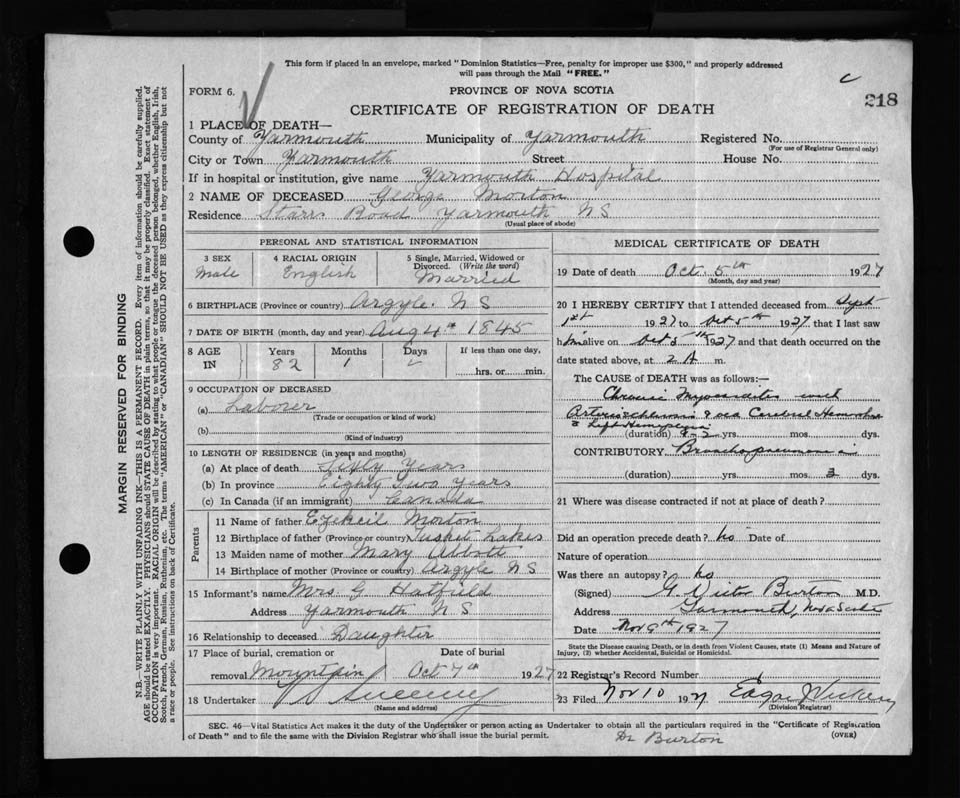 This form if placed in an envelope, marked "Dominion Statistics—Free, penalty for improper use $300," and properly addressed
will pass through the Mail "FREE."
FORM 6.
PROVINCE OF NOVA SCOTIA
c
218
CERTIFICATE OF REGISTRATION OF DEATH
1 PLACE OF DEATH—
County of Yarmouth Municipality of Yarmouth Registered No.
(For use of Registrar General only)
City or Town Yarmouth Street House No.
If in hospital or institution, give name Yarmouth Hospital
2 NAME OF DECEASED George Morton
Residence Starrs Road Yarmouth N S
(Usual place of abode)
PERSONAL AND STATISTICAL INFORMATION
3 SEX
Male
4 RACIAL ORIGIN
English
5 Single, Married, Widowed or
Divorced. (Write the word)
Married
6 BIRTHPLACE (Province or country) Argyle. N S
7 DATE OF BIRTH (month, day and year) Aug 4th 1845
8 AGE
IN
Years
82
Months
1
Days
If less than one day,
hrs. or min.
9 OCCUPATION OF DECEASED
(a) Laborer
(Trade or occupation or kind of work)
(b)
(Kind of industry)
10 LENGTH OF RESIDENCE (in years and months)
(a) At place of death Years
(b) In province Eighty Two Years
(c) In Canada (if an immigrant) Canada
Parents
11 Name of father Ezekeil Morton
12 Birthplace of father (Province or country) Tusket Lakes
13 Maiden name of mother Mary Abbott
14 Birthplace of mother (Province or country) Argyle N S
15 Informant's name Mrs G Hatfield
Address Yarmouth N S
16 Relationship to deceased Daughter
17 Place of burial, cremation or
removal Mountain
Date of burial
Oct 7th 1927
18 Undertaker Sweeny
(Name and address)
MEDICAL CERTIFICATE OF DEATH
19 Date of death Oct. 5th 1927
(Month, day and year)
20 I HEREBY CERTIFY that I attended deceased from Sept
1st 1927 to Oct 5th 1927 that I last saw
him alive on Oct 5th 1927 and that death occurred on the
date stated above, at 2 A m.
The CAUSE of DEATH was as follows:—
Chronic Myocarditis with
Arteriosclerosis & old Cerebral Hemorrhage
& Left Hemiplegia
(duration) yrs. mos. dys.
CONTRIBUTORY Bronchopneumonia
(duration) yrs. mos. 3 dys.
21 Where was disease contracted if not at place of death?
Did an operation precede death? no Date of
Nature of operation
Was there an autopsy? no
(Signed) G. Victor Burton M.D.
Address Yarmouth, Nova Scotia
Date Nov 9th 1927
State the Disease causing Death, or in death from Violent Causes, state (1) Means and Nature of
Injury, (2) whether Accidental, Suicidal or Homicidal.
22 Registrar's Record Number
23 Filed Nov 10 1927 Edgar
(Division Registrar)
SEC. 46—Vital Statistics Act makes it the duty of the Undertaker or person acting as Undertaker to obtain all the particulars required in the "Certificate of Registration
of Death" and to file the same with the Division Registrar who shall issue the burial permit.
(OVER)
Dr Burton
MARGIN RESERVED FOR BINDING
N.B.—WRITE PLAINLY WITH UNFADING INK—THIS IS A PERMANENT RECORD. Every item of information should be carefully supplied.
AGE should be stated EXACTLY. PHYSICIANS should STATE CAUSE OF DEATH in plain terms, so that it may be properly classified. Exact statement of
OCCUPATION is very important. RACIAL ORIGIN will be described by stating to what people or tongue the deceased person belonged, whether English, Irish,
Scotch, French, German, Russian, Ruthenian, etc. The terms "AMERICAN" or "CANADIAN" SHOULD NOT BE USED as they express citizenship but not
a race or people. See instructions on back of Certificate.